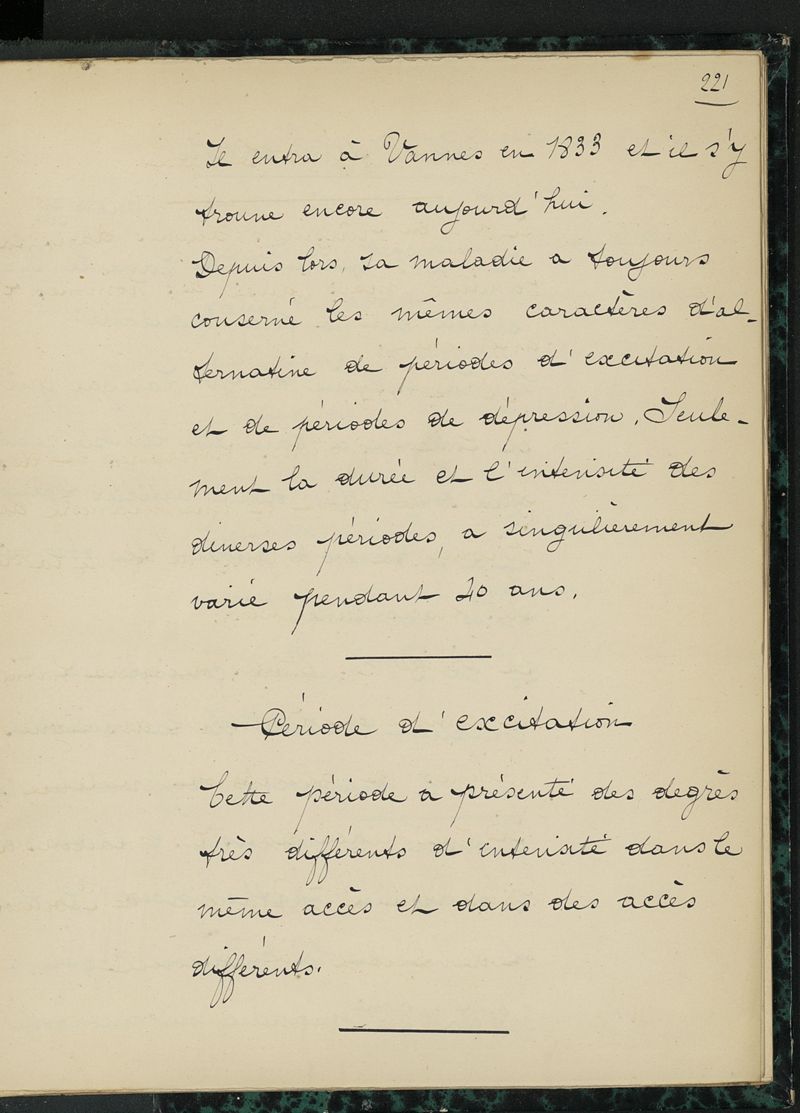 221
Il entra à Vannes en 1833 et il s'y
trouve encore aujourd'hui.
Depuis lors, sa maladie a toujours
conservé les mêmes caractères d'al-
ternative de périodes d'excitation
et de périodes de dépression. Seule-
ment la durée et l'intensité des
diverses périodes, a singulièrement
varié pendant 20 ans.
Période d'excitation
Cette période a présenté des degrès
très différents d'intensité dans le
même accès et dans des accès
différents.